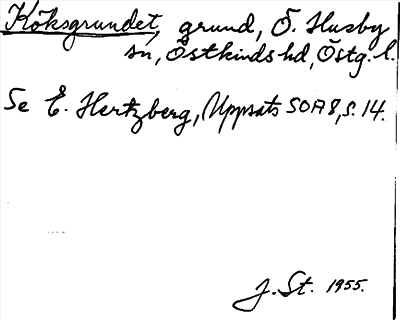 Köksgrundet, grund, Ö. Husby
sn, Östkinds hd, Östg. l.
Se E. Hertzberg, Uppsats SOA 8, s. 14.
J. St. 1955.